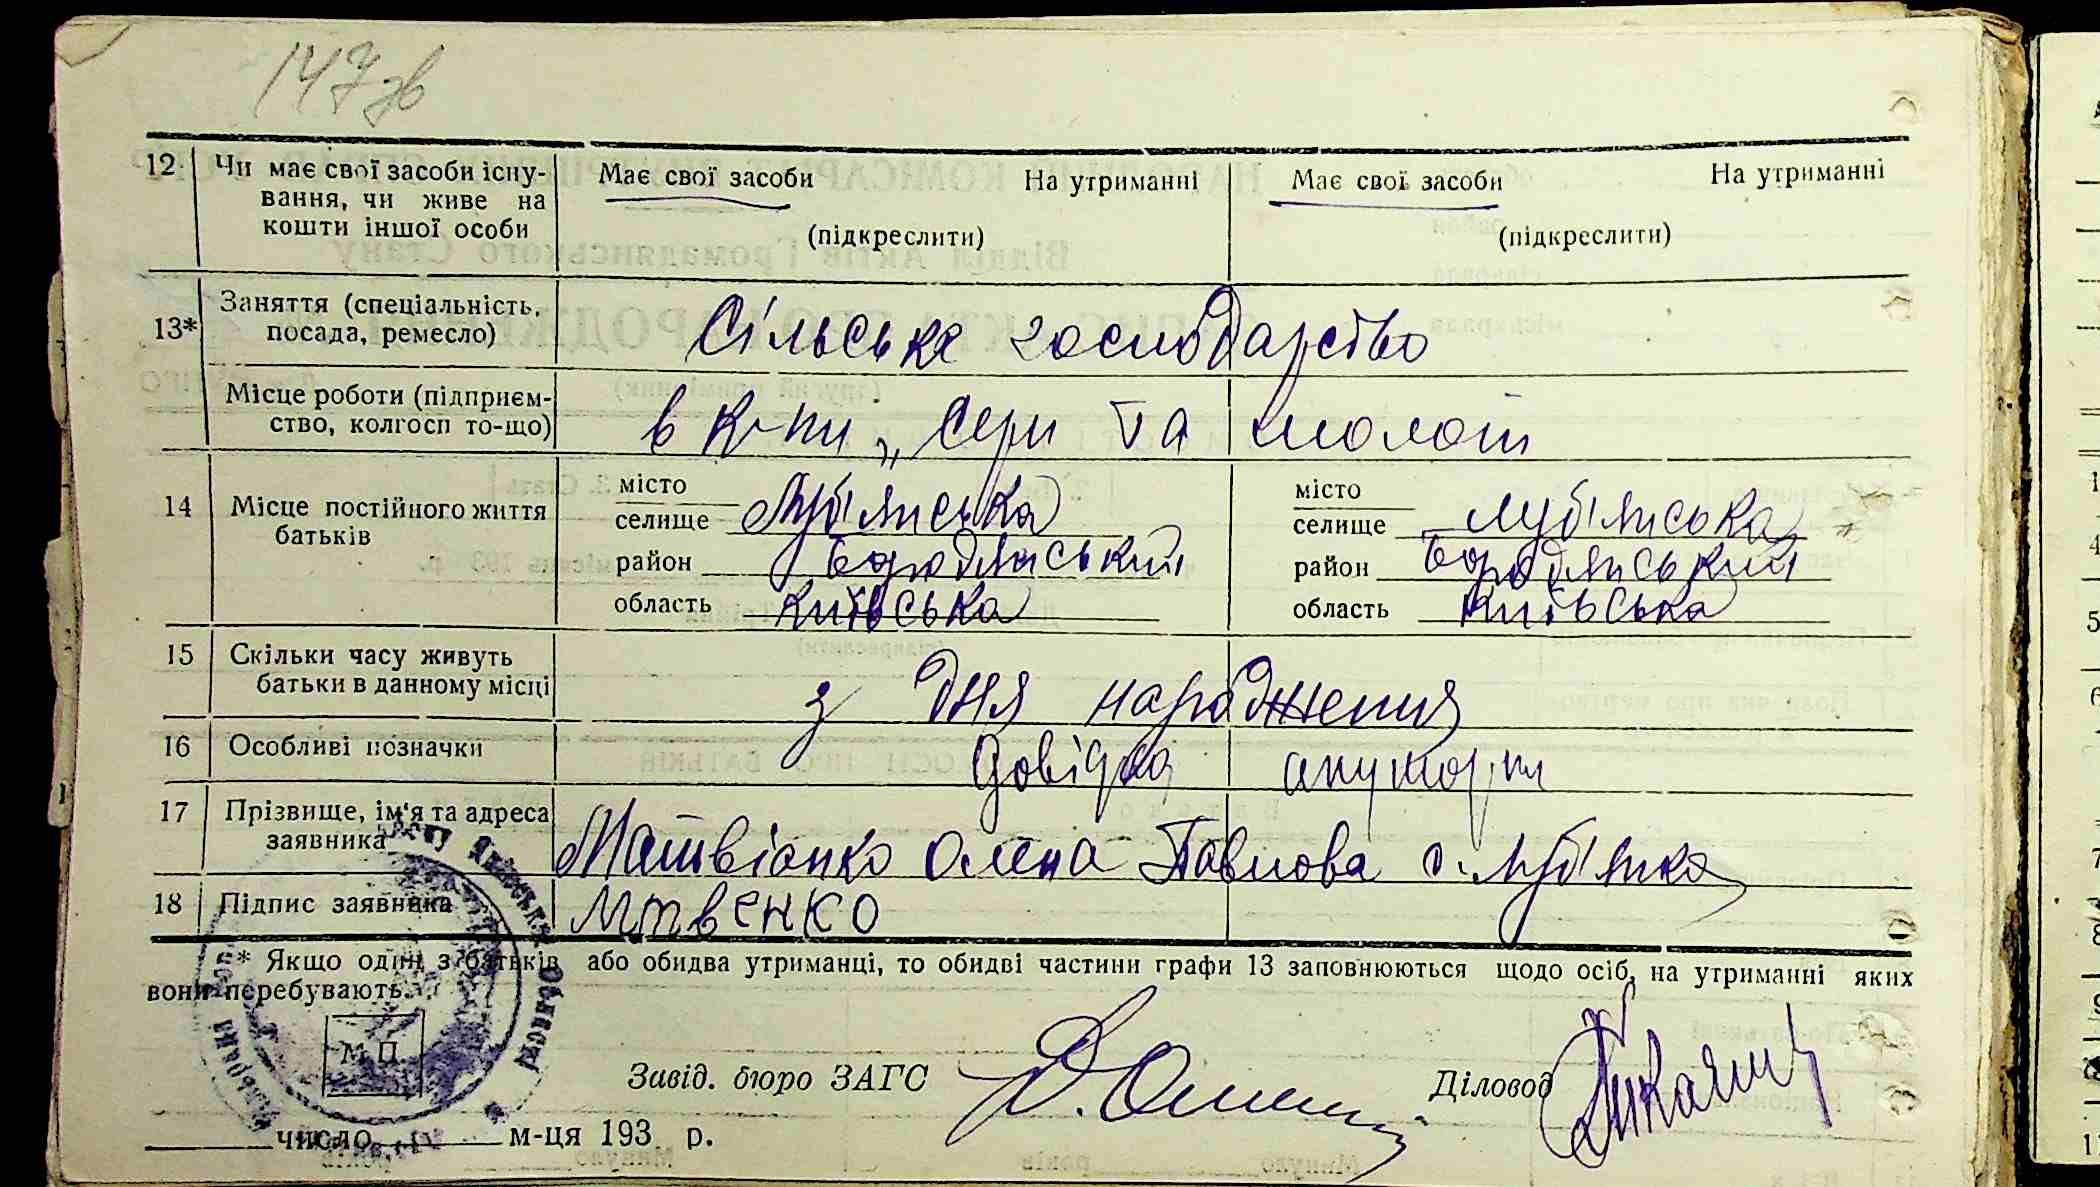 147 зв
12 Чи має свої засоби існу-
вання, чи живе на
кошти іншої особи
Має свої засоби На утриманні Має свої засоби На утриманні
(підкреслити) (підкреслити)
13* Заняття (спеціальність,
посада, ремесло)
Сільське господарство
Місце роботи (підприєм-
ство, колгосп то-що)
в к-пи „Серп та молот
14 Місце постійного життя
батьків
місто
селище Луб'янська
район Бородянський
область Київська
місто
селище Луб'янська
район Бородянський
область Київська
15 Скільки часу живуть
батьки в данному місці
з дня народження
16 Особливі позначки
довідка
17 Прізвище, ім'я та адреса
заявника
Матвієнко Олена Павлова с. Луб'янка
18 Підпис заявника
Мтвенко
* Якщо один з батьків або обидва утриманці, то обидві частини графи 13 заповнюються щодо осіб, на утриманні яких
вони перебувають.
М. П.
Завід. бюро ЗАГС
Діловод
число м-ця 193 р.